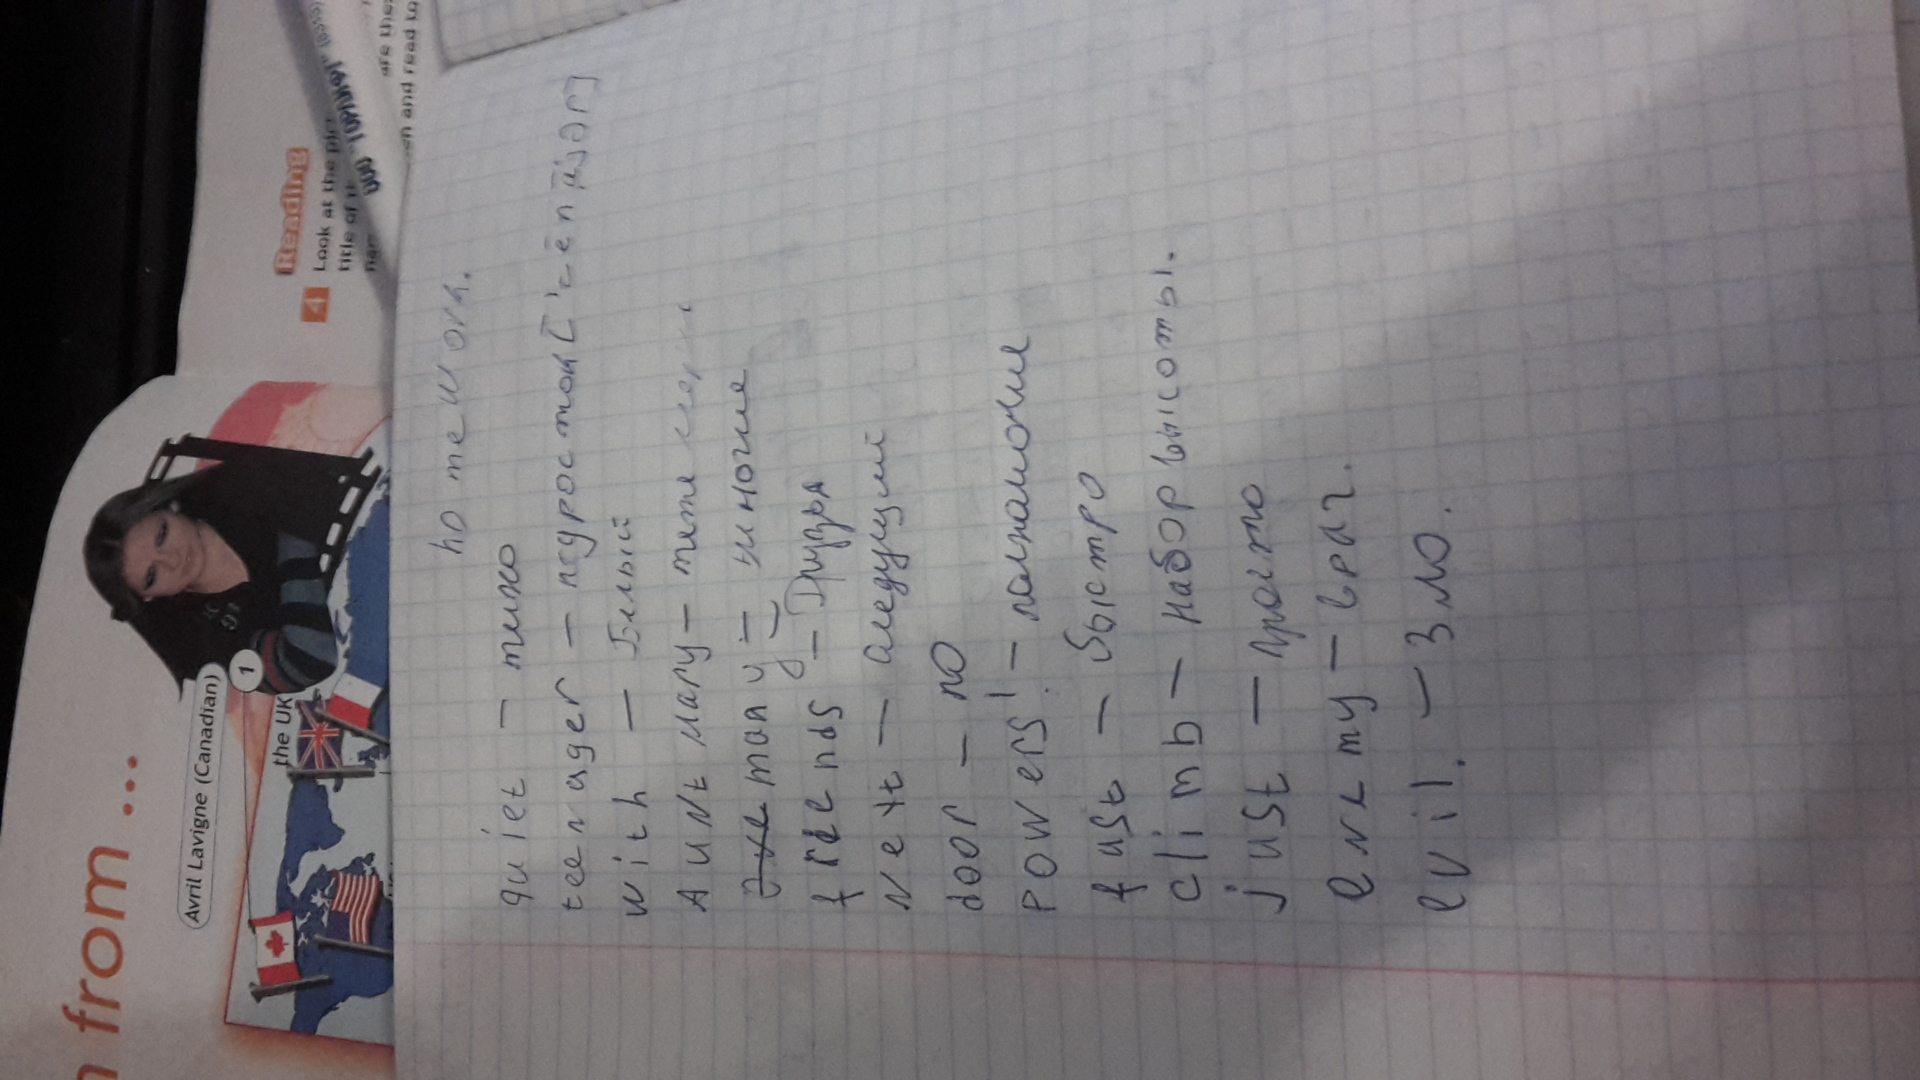 from ...
Avril Lavigne (Canadian)
1
the UK
4 Reading
Look at the
title of
are the
and read to
homework.
quiet – тихо
teenager – подросток
with – Белый
Aunt Mary – тетя
many – многие
friends – Друзья
Next – следущий
door – по
Powers! – полномочие
fast – быстро
climb – набор высоты.
just – просто
enemy – враг.
evil. – Зло.